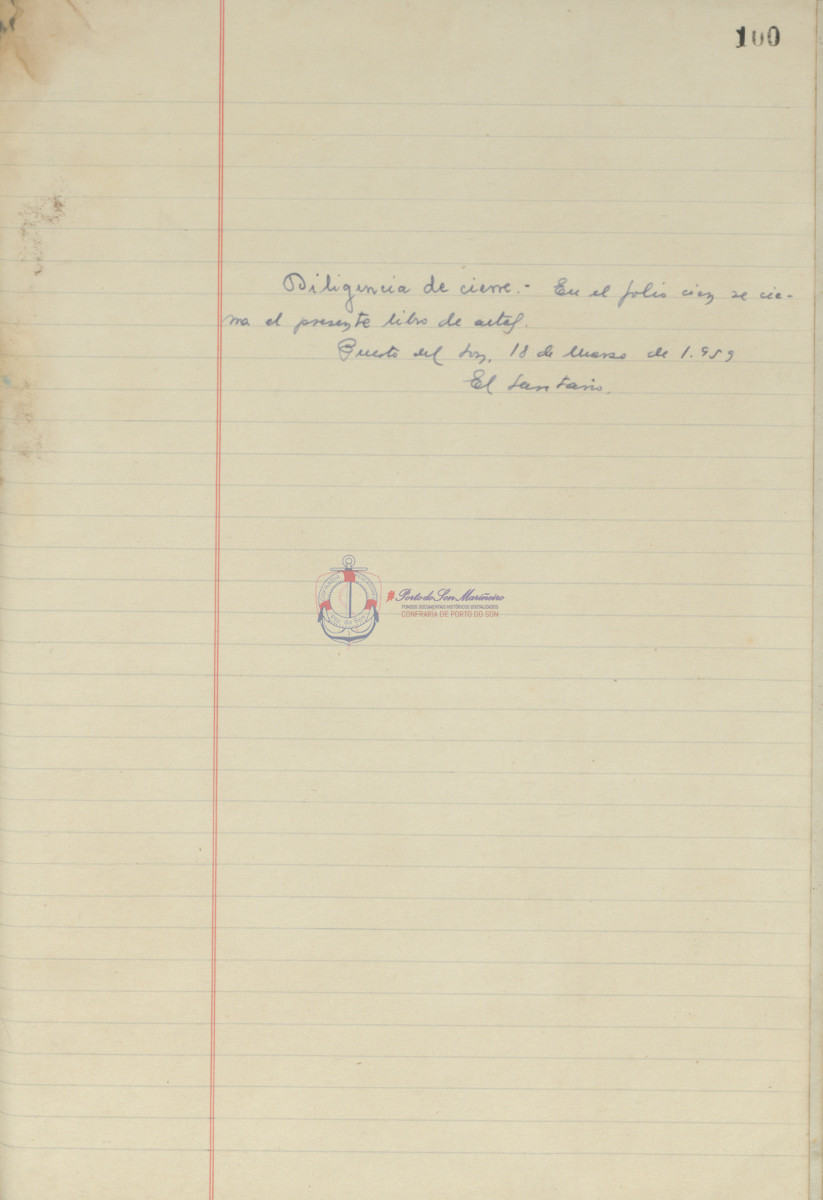 100
Diligencia de cierre.- En el folio cien se cie-
rra el presente libro de actas.
Puerto del Son, 18 de Marzo de 1.959
El Secretario,
Porto do Son Mariñeiro
FONDOS DOCUMENTAIS HISTÓRICOS DIXITALIZADOS
CONFRARÍA DE PORTO DO SON